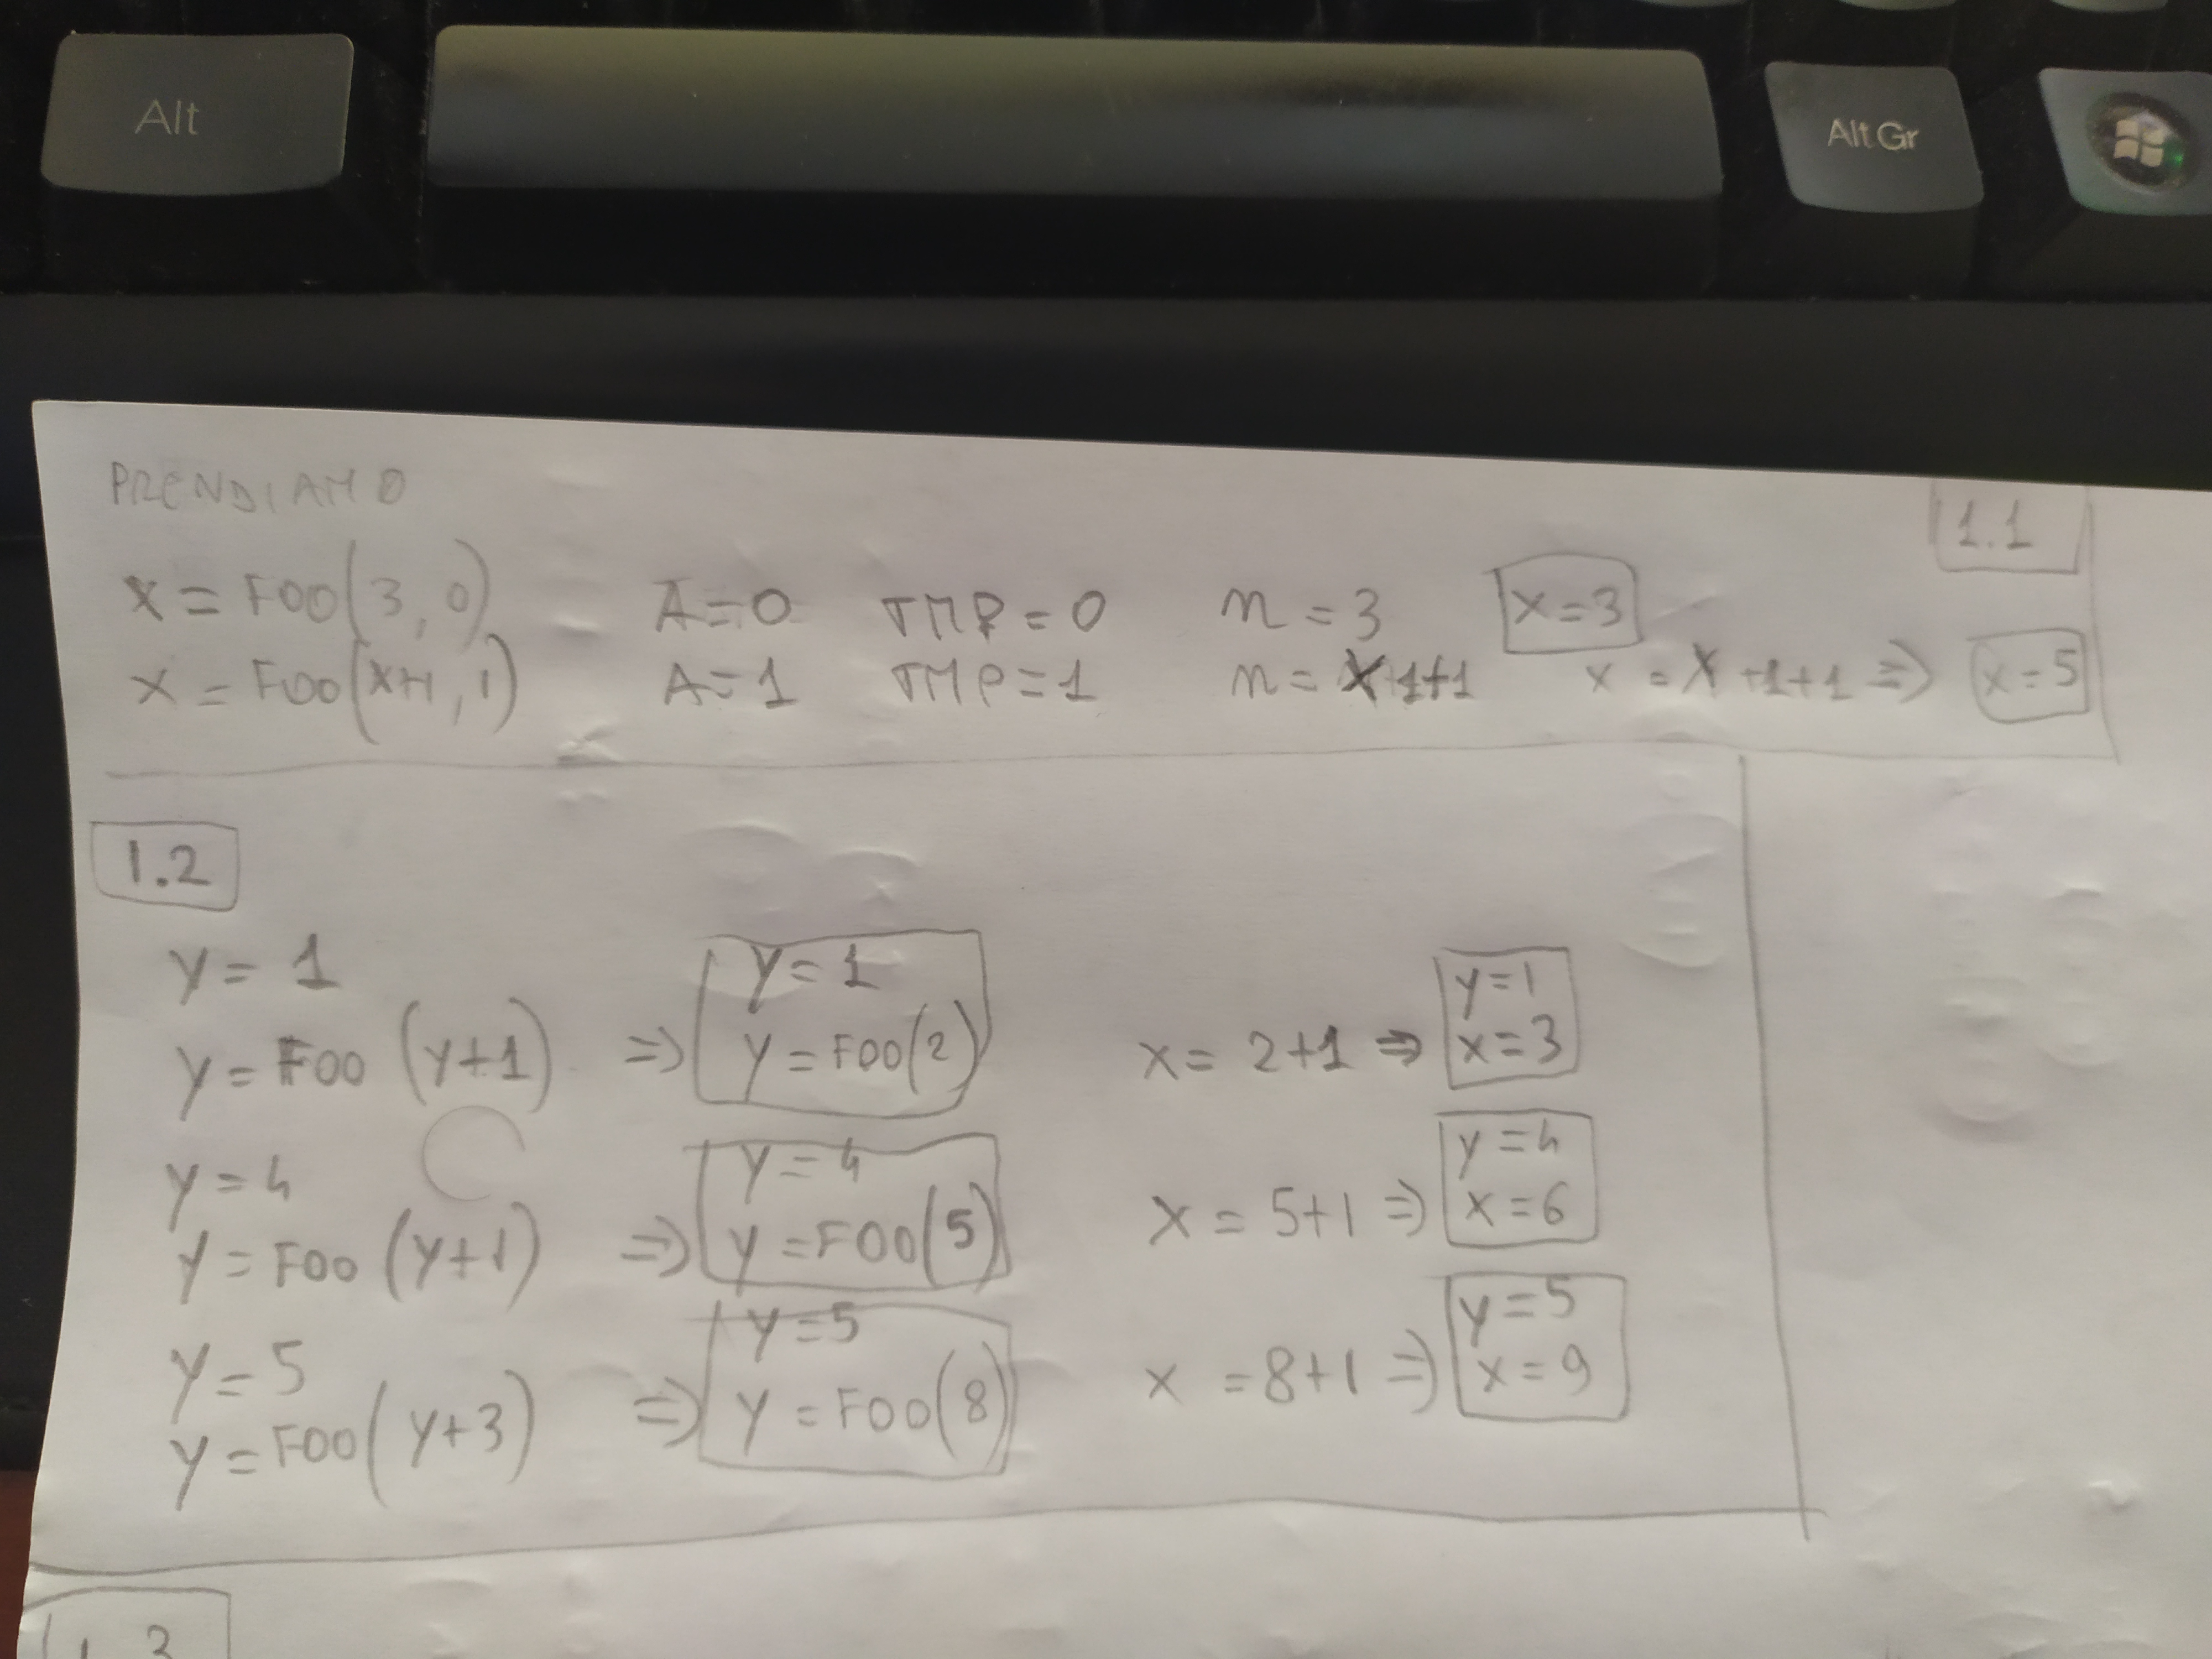 Alt
Alt Gr
PRENDIAMO
1.1
x = FOO(3,0) A=0 TMP=0 n=3 x=3
x = FOO(x+1,1) A=1 TMP=1 n=x+1+1 x=x+1+1 ⇒ x=5
1.2
y=1 y=1 y=1
y=FOO(y+1) ⇒ y=FOO(2) x=2+1 ⇒ x=3
y=4 y=4 y=4
y=FOO(y+1) ⇒ y=FOO(5) x=5+1 ⇒ x=6
y=5 y=5 y=5
y=FOO(y+3) ⇒ y=FOO(8) x=8+1 ⇒ x=9